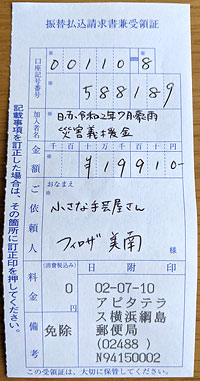 振替払込請求書兼受領証
口座記号番号
00110 8
588189
加入者名
日赤令和2年7月豪雨
災害義援金
金額
千百十万千百十円
¥19910
ご依頼人
おなまえ
小さな手芸屋さん
フィロザ 美南
様
料金
(消費税込み)
0
円
備考
免除
日附印
02-07-10
アピタテラ
ス横浜綱島
郵便局
(02488)
N94150002
記載事項を訂正した場合は、その箇所に訂正印を押してください。
この受領証は、大切に保管してください。